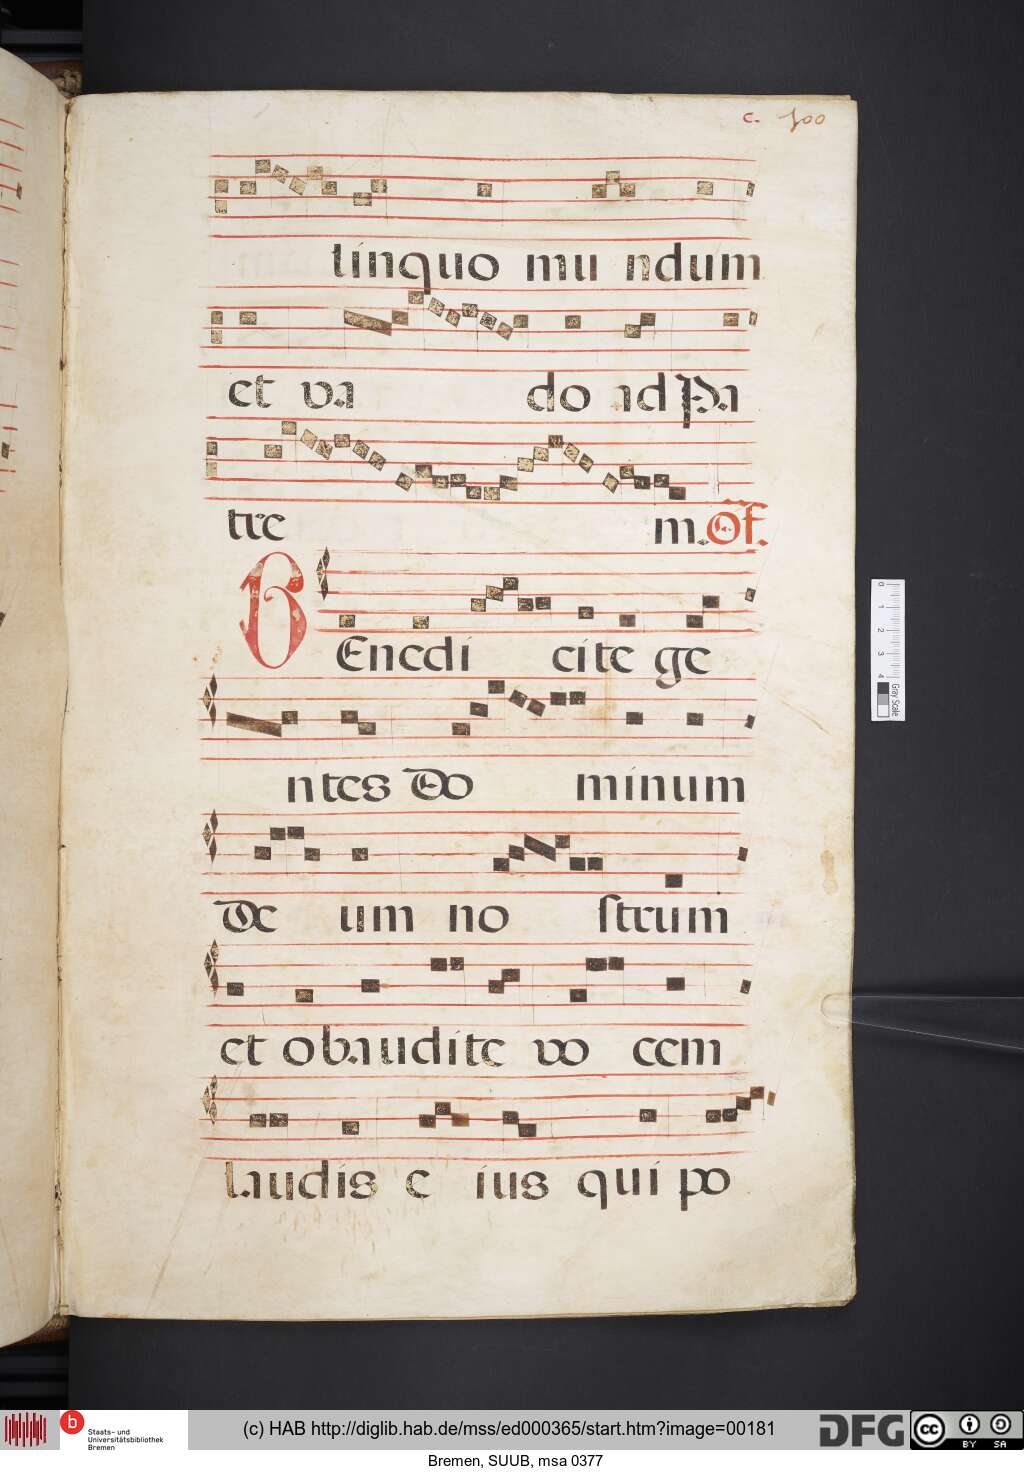 c. 100
linquo mu ndum
et va do ad Pa
tre m. Off.
BEnedi cite ge
ntes Do minum
De um no strum
et obaudite vo cem
laudis e ius qui po
0 1 2 3 4
Gray Scale
b
Staats- und
Universitätsbibliothek
Bremen
(c) HAB http://diglib.hab.de/mss/ed000365/start.htm?image=00181
DFG
cc BY SA
Bremen, SUUB, msa 0377